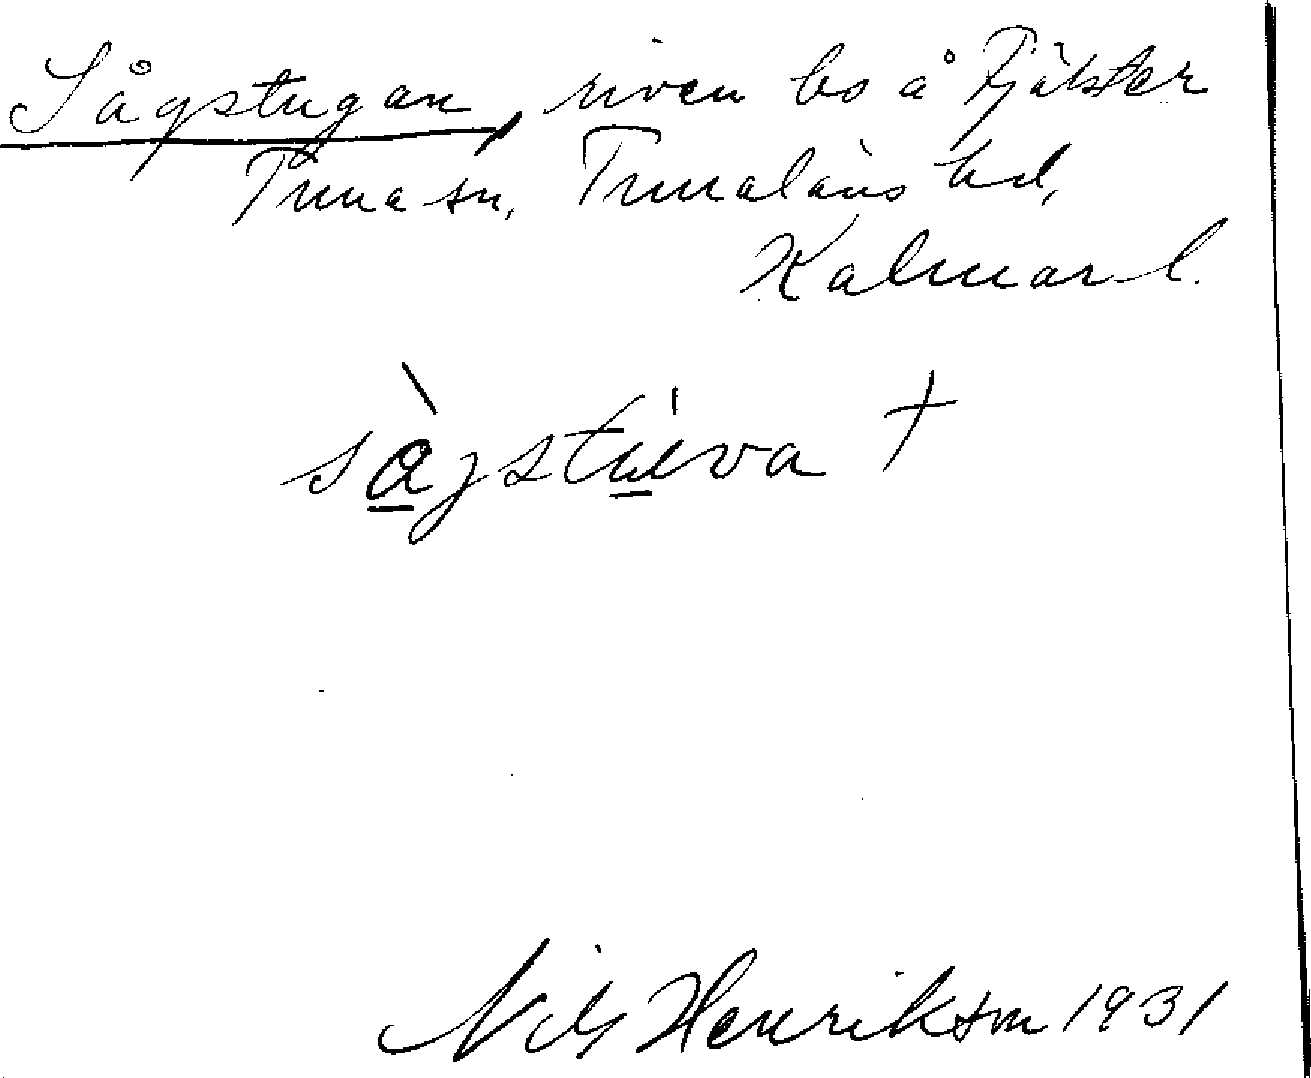 Sågstugan, riven bs å Tjälster
Tuna sn, Tunaläns hd,
Kalmar l.
sàgstu̲va †
Nils Henrikson 1931